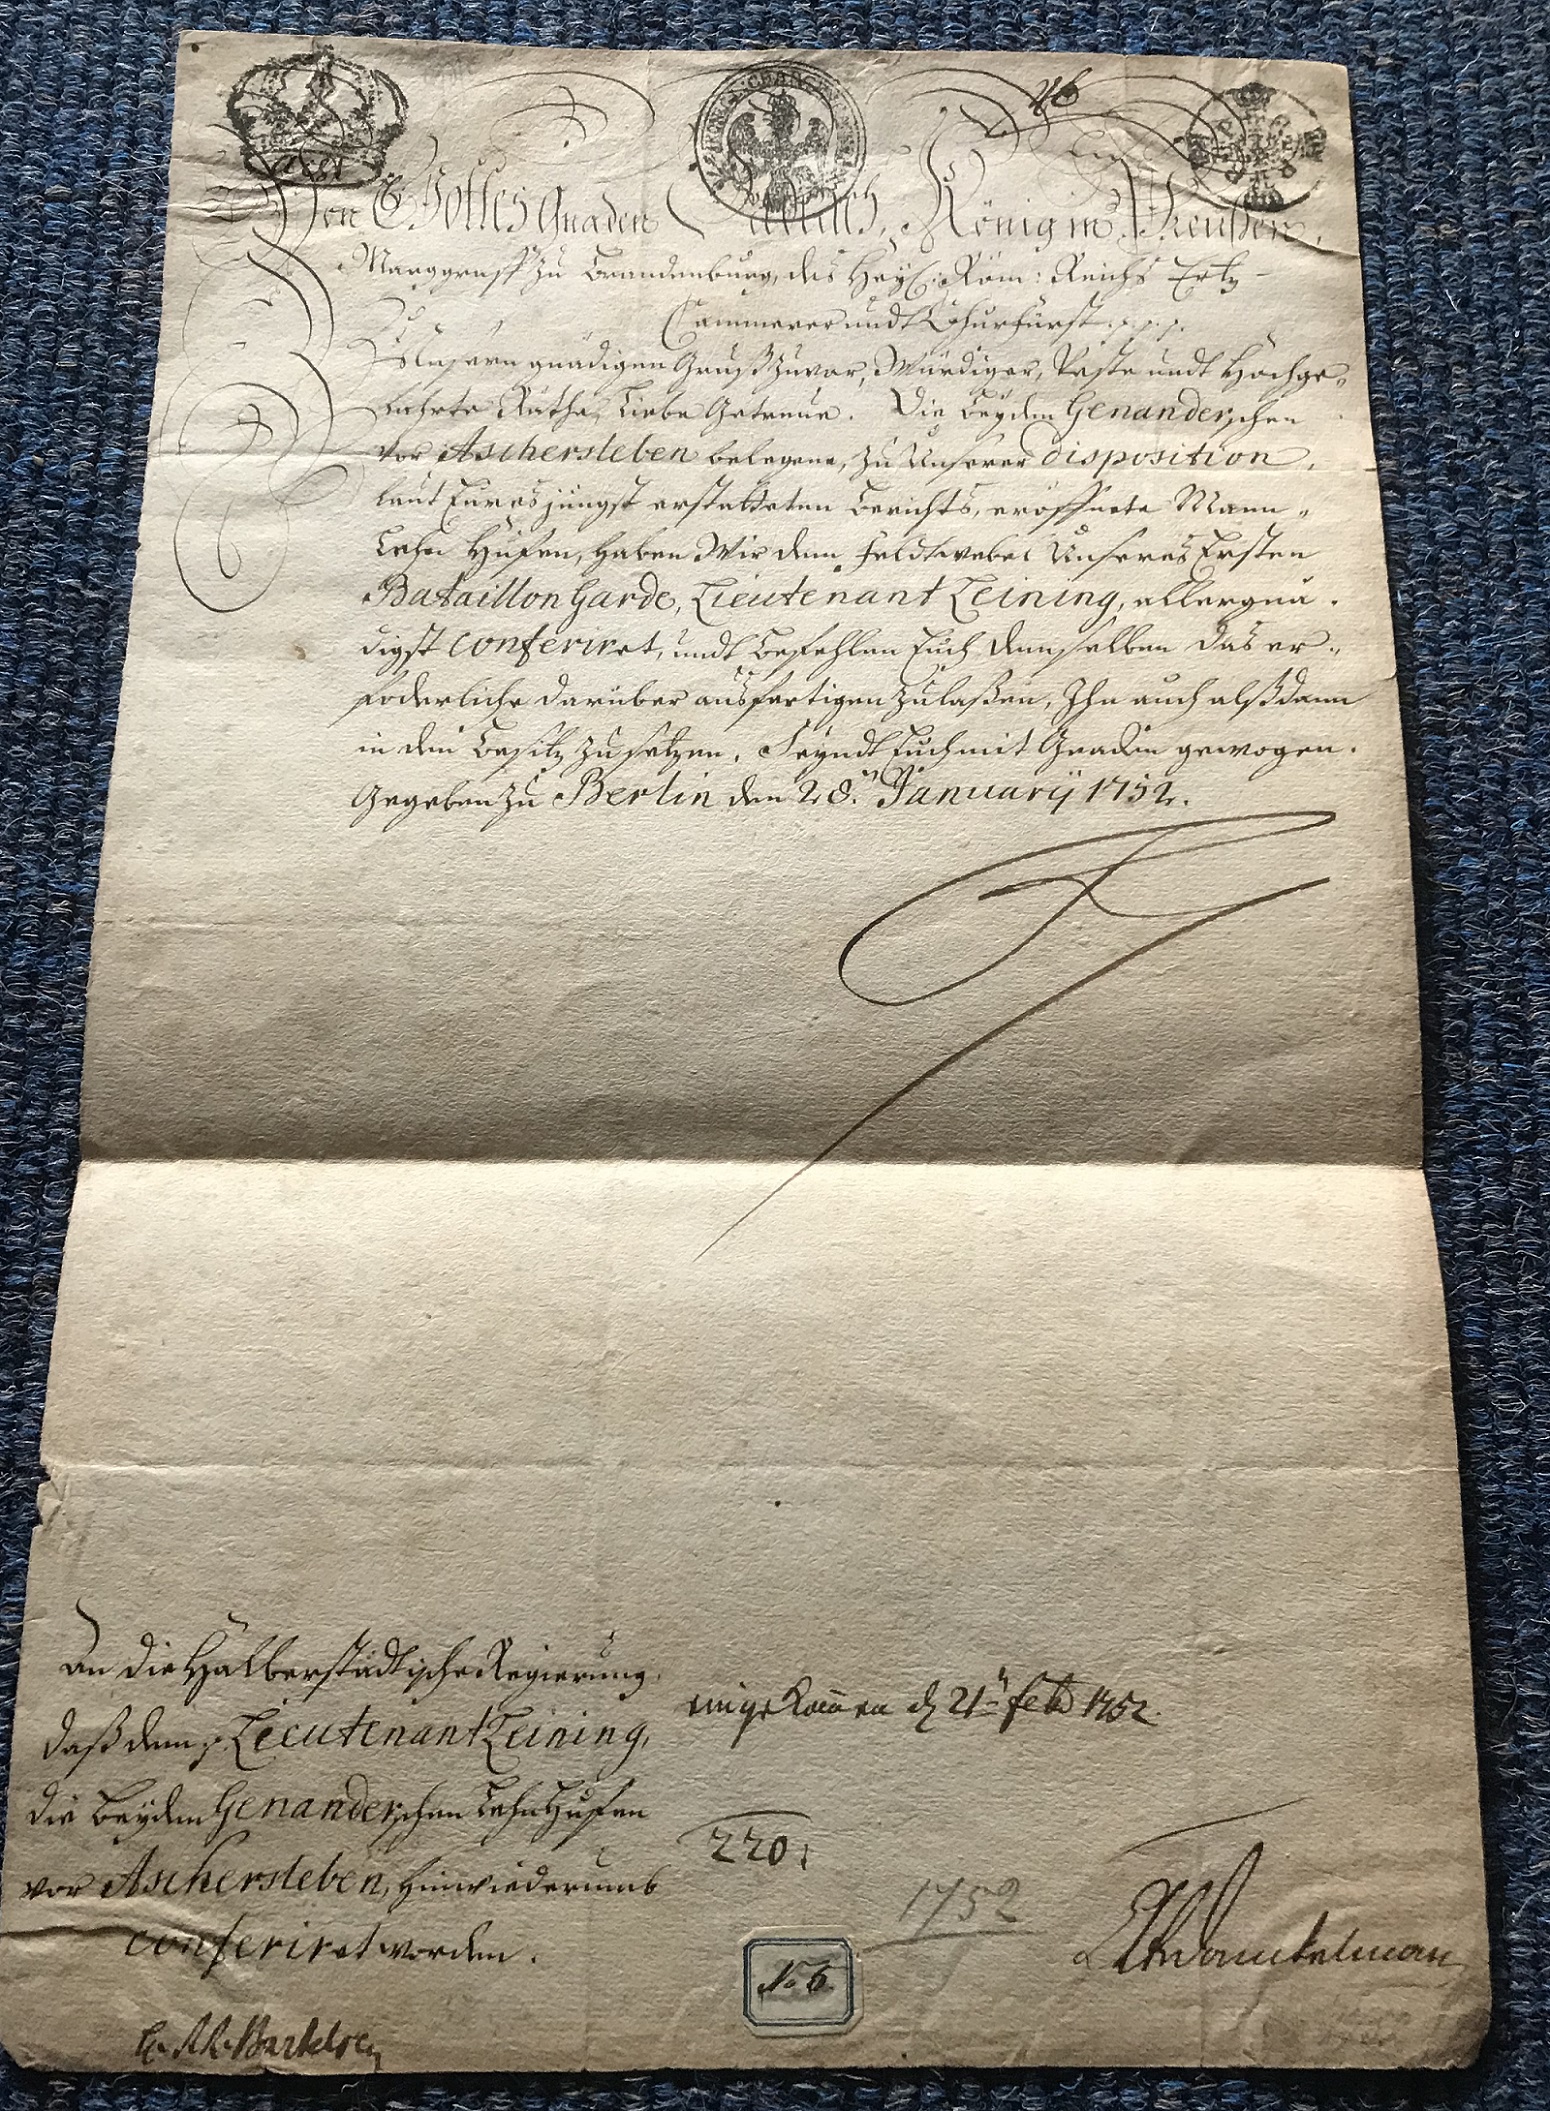 Von Gottes Gnaden Friderich, König in Preußen,
Marggraff zu Brandenburg, des Heyl: Röm: Reichs Ertz-
Cammerer undt Churfürst. p. p. p.
Unsern gnädigen Gruß zuvor, Würdiger, Veste undt Hochge„
lahrte Räthe, Liebe Getreue. Die beyden Genanderschen
vor Aschersleben belegene, zu Unserer disposition,
laut Eures jüngst erstatteten Berichts, eröffnete Mann„
Lehn Hufen, haben Wir dem Feldtwebel Unseres Ersten
Bataillon Garde, Lieutenant Leining, allergnä„
digst conferiret, undt befehlen Euch demselben das er„
foderliche darüber ausfertigen zulaßen, Ihn auch alßdann
in den Besitz zu setzen. Seyndt Euch mit Gnaden gewogen.
Gegeben zu Berlin den 28.n January 1752.
An die Halberstädtische Regierung.
daß dem p. Lieutenant Leining,
die beyden Genanderschen Lehn Hufen
vor Aschersleben, hinwiederumb
conferiret worden.
eingekommen d 21n Feb 1752.
220.
1752
No 6